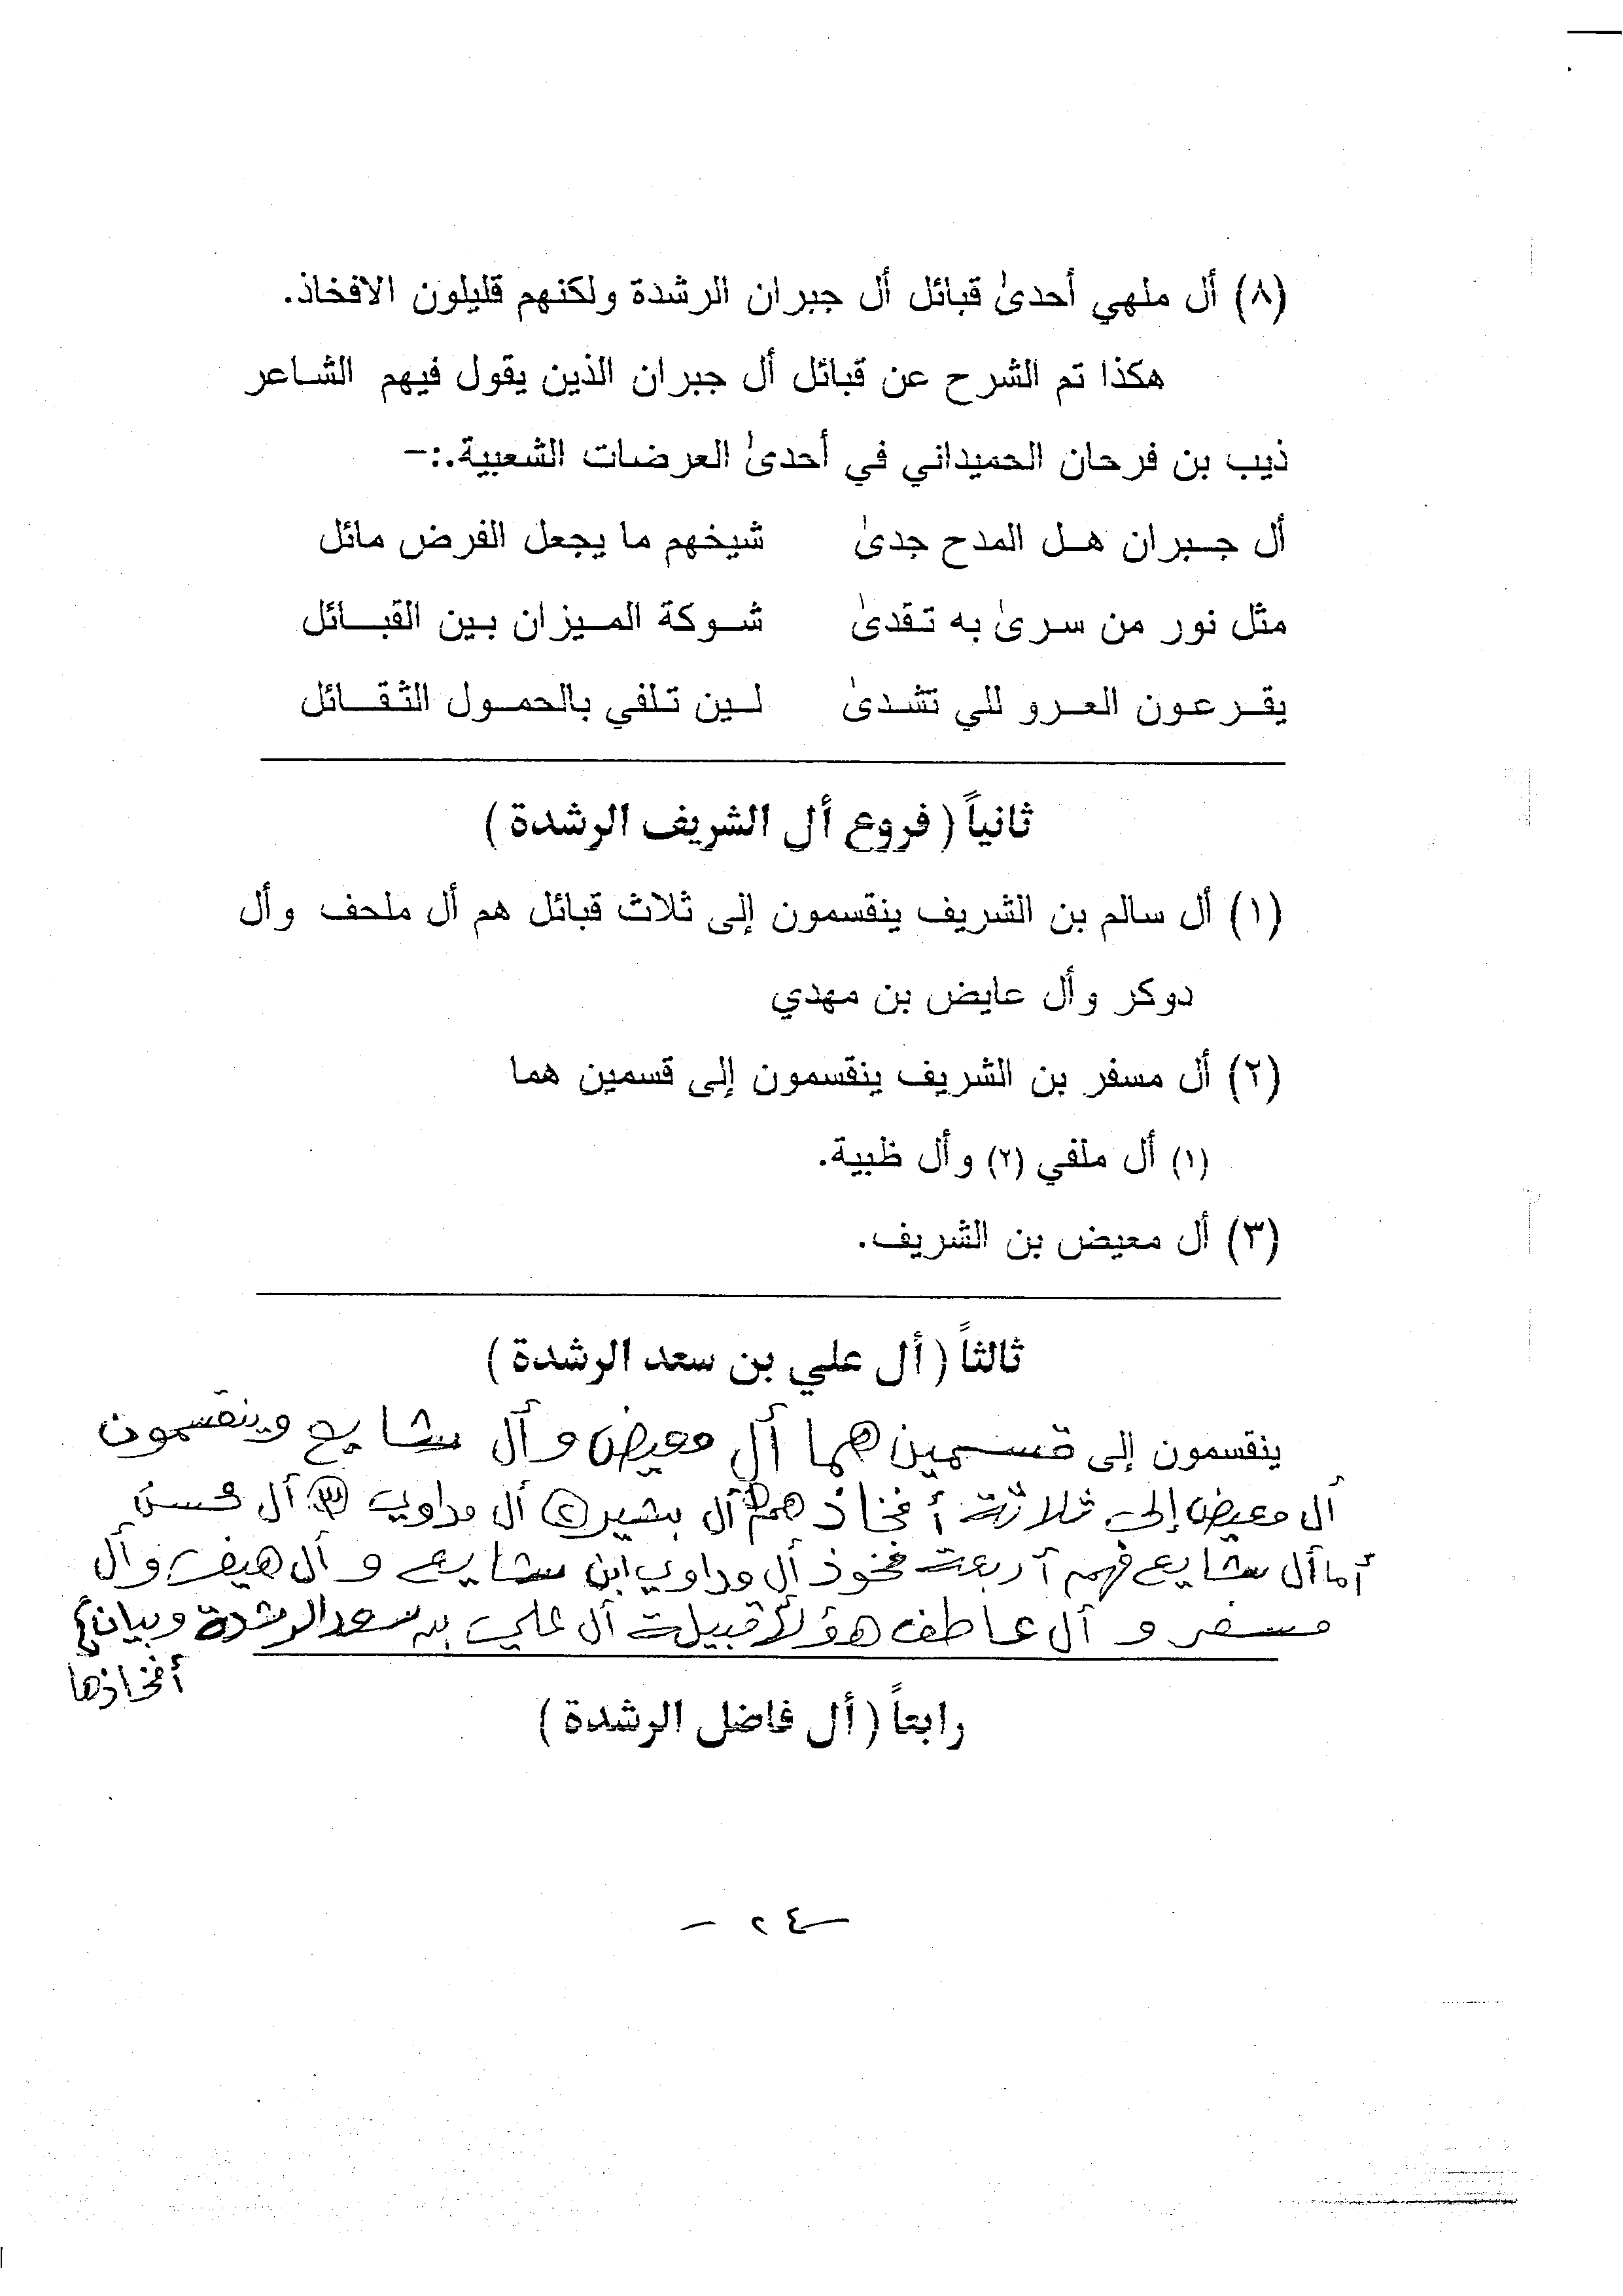 (٨) أل ملهي أحدىٰ قبائل أل جبران الرشدة ولكنهم قليلون الافخاذ.
هكذا تم الشرح عن قبائل أل جبران الذين يقول فيهم الشاعر
ذيب بن فرحان الحميداني في أحدىٰ العرضات الشعبية.:-
أل جبران هل المدح جدىٰ شيخهم ما يجعل الفرض مائل
مثل نور من سرىٰ به تقدىٰ شوكة الميزان بين القبائل
يقرعون العرو للي تشدىٰ لين تلفي بالحمول الثقائل
ثانياً (فروع أل الشريف الرشدة)
(١) أل سالم بن الشريف ينقسمون إلى ثلاث قبائل هم أل ملحف وأل
دوكر وأل عايض بن مهدي
(٢) أل مسفر بن الشريف ينقسمون إلى قسمين هما
(١) أل ملفي (٢) وأل ظبية.
(٣) أل معيض بن الشريف.
ثالثاً (أل علي بن سعد الرشدة)
ينقسمون إلى قسمين هما أل معيض وأل مشايع وينقسمون
أل معيض إلى ثلاثة أفخاذ هم ① أل بشير ② أل مداوي ③ أل محسن
أما أل مشايع فهم أربعة فخوذ أل مداوي ابن مشايع وأل هيف وأل
مسفر وأل عاطف هؤلأ قبيلة أل علي بن سعد الرشدة وبيان
أفخاذها
رابعاً (أل فاضل الرشدة)
- ٢٤ -